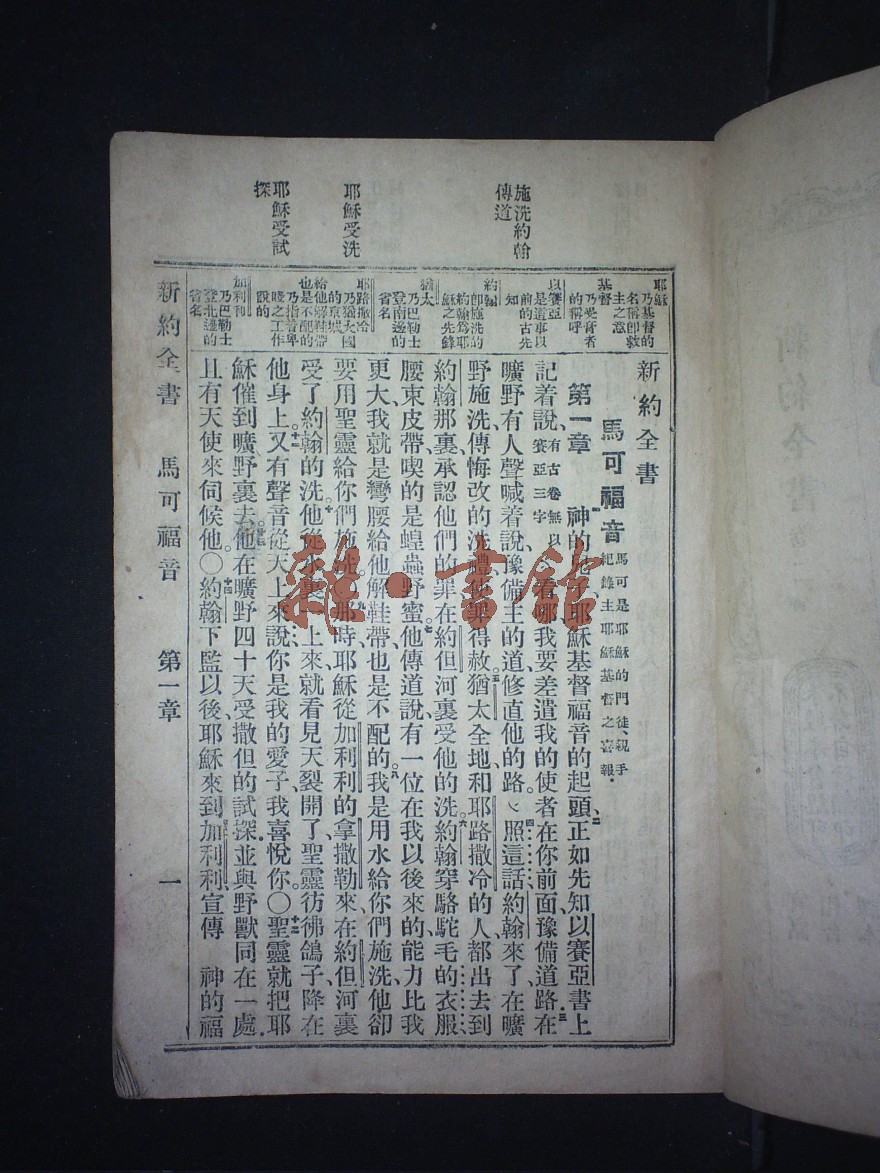 施洗約翰
傳道
耶穌受洗
耶穌受試
探
耶穌乃基督的
名稱即救
主之意
基督乃受膏者
的稱呼
以賽亞
是道事以
前的古先
知
約翰即施洗的
約翰為耶
穌之先鋒
猶太乃巴勒士
登南邊的
省名
耶路撒冷
乃猶大國
的京城
給他解鞋帶
也是不配的
乃指着卑
賤之工作
說的
加利利
乃巴勒士
登北邊的
省名
新約全書
馬可福音 馬可是耶穌的門徒、親手
紀錄主耶穌基督之喜報.
第一章 神的兒子耶穌基督福音的起頭、二正如先知以賽亞書上
記着說、有古卷無以賽亞三字看哪我要差遣我的使者在你前面豫備道路三在
曠野有人聲喊着說豫備主的道、修直他的路、四照這話約翰來了、在曠
野施洗、傳悔改的洗禮、使罪得赦。五猶太全地、和耶路撒冷的人都出去到
約翰那裏、承認他們的罪、在約但河裏受他的洗。六約翰穿駱駝毛的衣服、
腰束皮帶、喫的是蝗蟲野蜜。七他傳道說、有一位在我以後來的、能力比我
更大、我就是彎腰給他解鞋帶、也是不配的。八我是用水給你們施洗、他卻
要用聖靈給你們施洗。〇九那時、耶穌從加利利的拿撒勒來、在約但河裏
受了約翰的洗。十他從水裏一上來、就看見天裂開了、聖靈彷彿鴿子、降在
他身上。十一又有聲音從天上來說、你是我的愛子、我喜悅你。〇十二聖靈就把耶
穌催到曠野裏去。十三他在曠野四十天受撒但的試探.並與野獸同在一處.
且有天使來伺候他。〇十四約翰下監以後、耶穌來到加利利、宣傳 神的福
新約全書 馬可福音 第一章 一
雜·書館